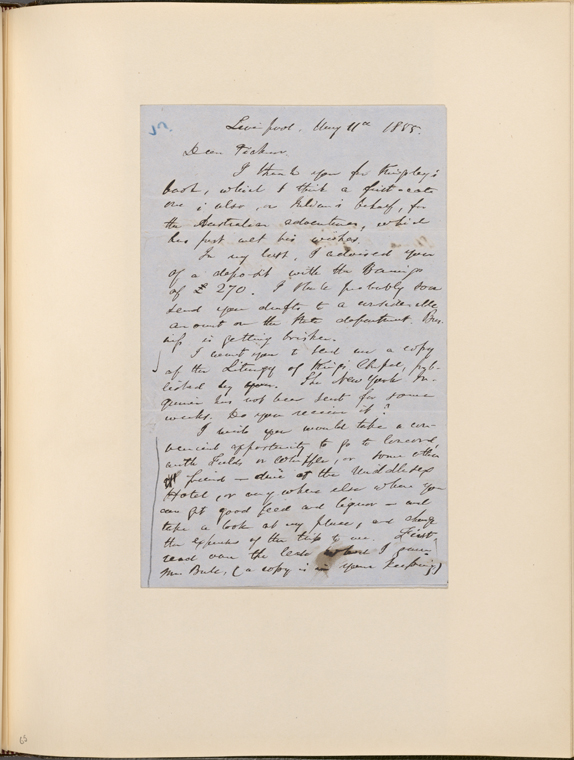 Liverpool, May 11th 1855.
Dear Ticknor.
I thank you for Kingsley's
book, which I think a first-rate
one; also, in Julian's behalf, for
the Australian adventures, which
has just met his wishes.
In my last, I advised you
of a deposit with the Barings
of £ 270. I shall probably soon
send you drafts to a considerable
amount on the State department. Bus-
iness is getting brisker.
I want you to send me a copy
of the Liturgy of King's Chapel, pub-
lished by you. The New York In-
quirer has not been sent for some
weeks. Do you receive it?
I wish you would take a con-
venient opportunity to go to Concord,
with Fields or Whipple, or some other
friend — dine at the Middlesex
Hotel, or anywhere else where you
can get good feed and liquor — and
take a look at my place, and charge
the expenses of the trip to me. First
read over the lease which I gave
Mr Bull, (a copy is in your keeping)
65